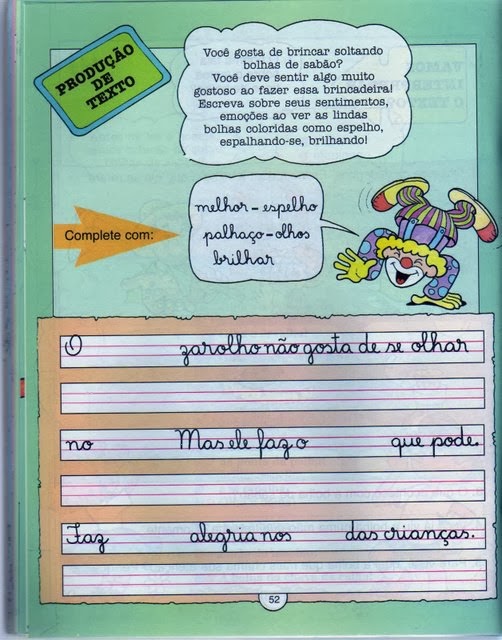 PRODUÇÃO
DE
TEXTO
Você gosta de brincar soltando
bolhas de sabão?
Você deve sentir algo muito
gostoso ao fazer essa brincadeira!
Escreva sobre seus sentimentos,
emoções ao ver as lindas
bolhas coloridas como espelho,
espalhando-se, brilhando!
melhor - espelho
palhaço - olhos
brilhar
Complete com:
O zarolho não gosta de se olhar
no Mas ele faz o que pode.
Faz alegria nos das crianças.
52